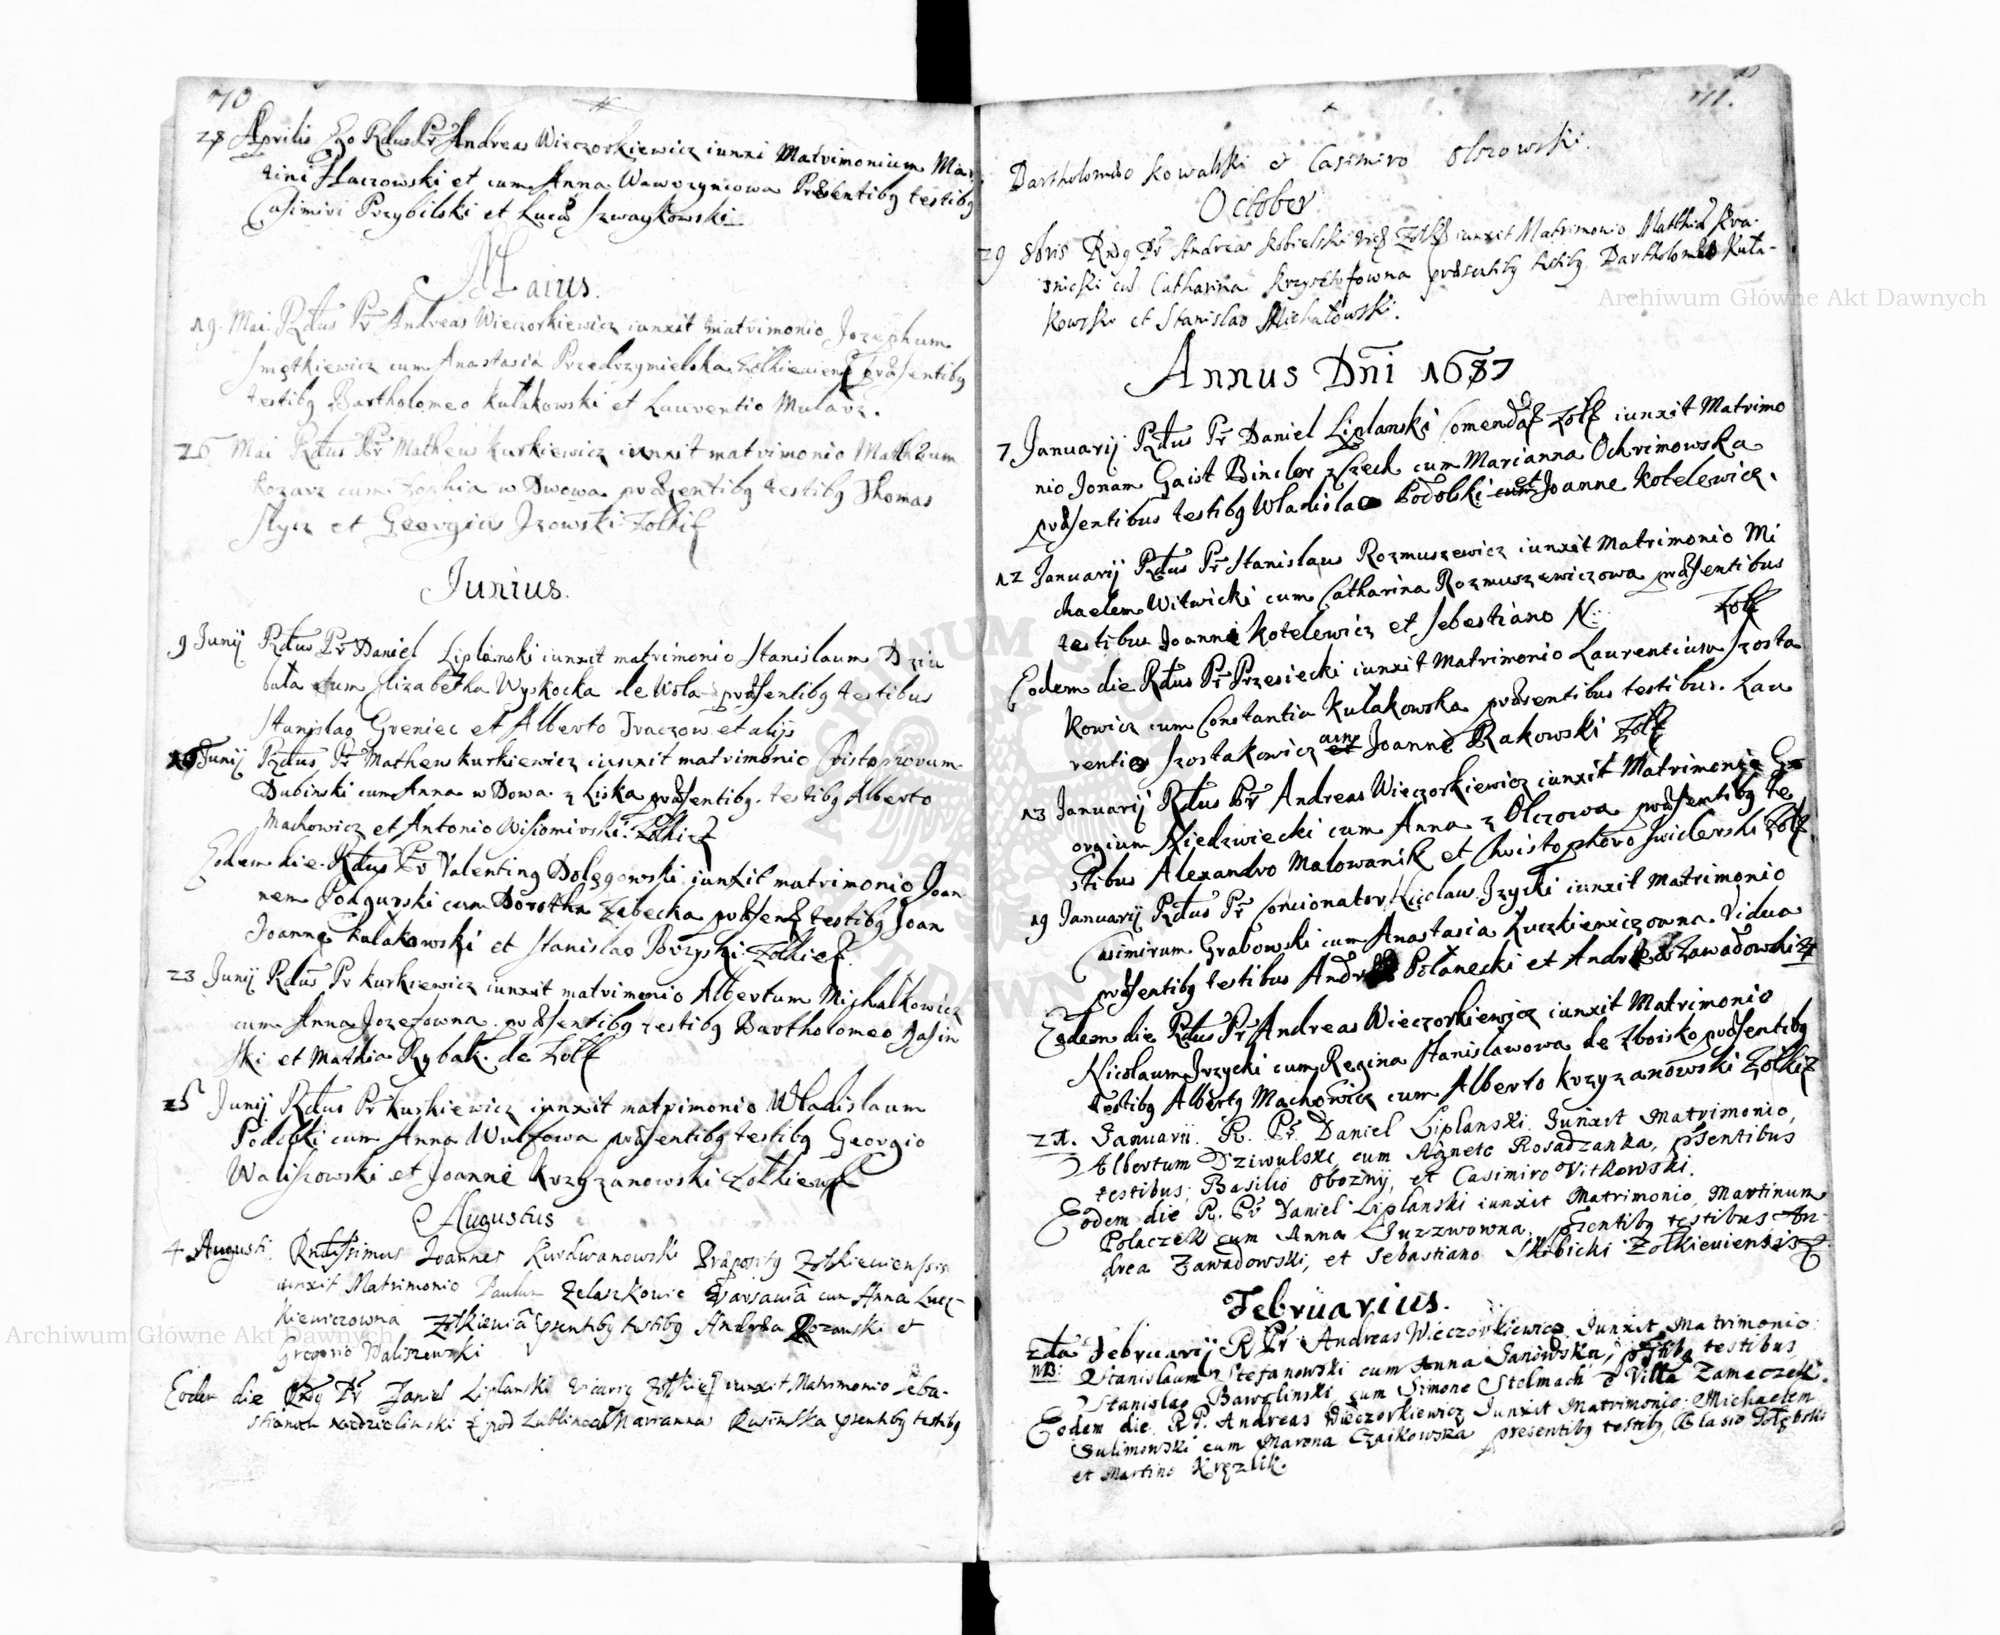 70
28 Aprilis Ego Rdus Pr Andreas Wieczorkiewicz iunxi Matrimonium Mar
tini Tkaczowski et cum Anna Wawrzyniowa Præsentibq testibq
Casimiri Przybilski et Lucæ Szwaykowski
Maius.
19. Mai. Rdus Pr Andreas Wieczorkiewicz iunxit matrimonio Jozephum
Smętkiewicz cum Anastasia Przedrzymielska Zolkieniens præsentibq
testibq Bartholomeo Kułakowski et Laurentio Mularz.
26 Mai Rdus Pr Matheus Kurkiewicz iunxit matrimonio Mathæum
Kozarz cum Zophia w Dwowa præsentibq testibq Thomas
Slycz et Georgius Izowski Zolkif
Junius.
9 Junij Rdus Pr Daniel Liplanski iunxit matrimonio Stanislaum Dziu
bała cum Elizabetha Wysocka de Wola præsentibq testibus
Stanislao Greniec et Alberto Traczow et alijs
16 Junij Rdus Pr Matheus Kurkiewicz iunxit matrimonio Cristophorum
Dubinski cum Anna w Dowa z Liska præsentibq. testibq Alberto
Machowicz et Antonio Wisiomirski Zolkief
Eodem die Rdus Pr Valentinq Dolęgowski iunxit matrimonio Joan
nem Podgurski cum Dorotha Zębecka præsent testibq Joan
Joanne Kulakowski et Stanislao Borzyski Zolkief
23 Junij Rdus Pr Kurkiewicz iunxit matrimonio Albertum Michalkowicz
cum Anna Jozefowna præsentibq testibq Bartholomeo Jasin
ski et Mathia Rybak de Zolf
25 Junij Rdus Pr Kurkiewicz iunxit matrimonio Wladislaum
Podolski cum Anna Wulzowa præsentibq testibq Georgio
Waliszowski et Joanne Krzyzanowski Zolkiew
Augustus
4 Augusti Rndissimus Joannes Kurdwanowski Præpositq Zolkieuiensis
iunxit Matrimonio Paulum Zelaszkowic Varsauia cum Anna Lucz-
kiewiczowna Zolkieuia psentibq testibq Andrea Rozanski et
Gregorio Waliszewski
Eodem die Rndq Pr Daniel Liplanski Vicariq Zolkief iunxit Matrimonio Seba-
stianum Niedzielinski z pod Lublina et Marianna Rusinska psentibq testibq
71.
Bartholomæo Kowalski et Casimiro Olszowski.
October
29 8bris Rndq Pr Andreas Kobielski Vic Zolkf iunxit Matrimonio Matthia Kra-
snicki cu Catharina Krzysztofowna præsentibq testibq Bartholomæo Kuła-
kowski et Stanislao Michałowski.
Annus Dni 1687
7 Januarij Rdus Pr Daniel Liplanski Comendaf Zolf iunxit Matrimo
nio Jonam Gaist Binder z Czech cum Marianna Ochrimowska
præsentibus testibq Wladislao Podolski cum et Joanne Kotelewicz.
12 Januarij Rdus Pr Stanislaus Rozmuszewicz iunxit Matrimonio Mi
chaelem Witwicki cum Catharina Rozmuszewiczowa præsentibus
testibus Joanne Kotelewicz et Sebestiano N: Zolf
Eodem die Rdus Pr Przesiecki iunxit Matrimonio Laurentium Szosta
kowicz cum Constantia Kułakowska præsentibus testibus. Lau
rentio Szostakowicz et cum Joanne Rakowski Zolf
13 Januarij Rdus Pr Andreas Wieczorkiewicz iunxit Matrimonio Ge
orgium Niedzwiecki cum Anna z Olczowa præsentibq te
stibus Alexandro Malowanik et Christophoro Swiderski Zolf.
19 Januarij Rdus Pr Concionator Nicolaus Jzycki iunxit Matrimonio
Casimirum Grabowski cum Anastasia Kuczkiewiczowna Vidua
præsentibq testibus Andrea Polanecki et Andrea Zawadowski Zf
Eodem die Rdus Pr Andreas Wieczorkiewicz iunxit Matrimonio
Nicolaum Jrzycki cum Regina Stanislawowa de Zboisko præsentibq
testibq Albertq Machowicz cum Alberto Krzyzanowski Zolkif
21. Januarii. R. Pr Daniel Liplanski Junxit Matrimonio,
Albertum Dziwulski cum Agnete Rosadzanka, psentibus
testibus; Basilio Obozny, et Casimiro Vitkowski.
Eodem die R. Pr Daniel Liplanski iunxit Matrimonio, Martinum
Polaczek cum Anna Guzzwowna, psentibq testibus An-
drea Zawadowski, et Sebastiano Skibicki Zolkieuiensis
Februarius.
2da Februarij R Pr Andreas Wieczorkiewicz Junxit Matrimonio:
NB: Stanislaum Stefanowski cum Anna Janowska, psntibq testibus
Stanislao Bawolinski cum Simone Stelmach e Villa Zameczek.
Eodem die R P. Andreas Wieczorkiewicz Junxit Matrimonio: Michaelem
Sulimowski cum Maryna Czaikowska presentibq testibq Blasio Gołębski
et Martino Kręzlik.
Archiwum Główne Akt Dawnych
Archiwum Główne Akt Dawnych
ARCHIWUM GŁÓWNE AKT DAWNYCH